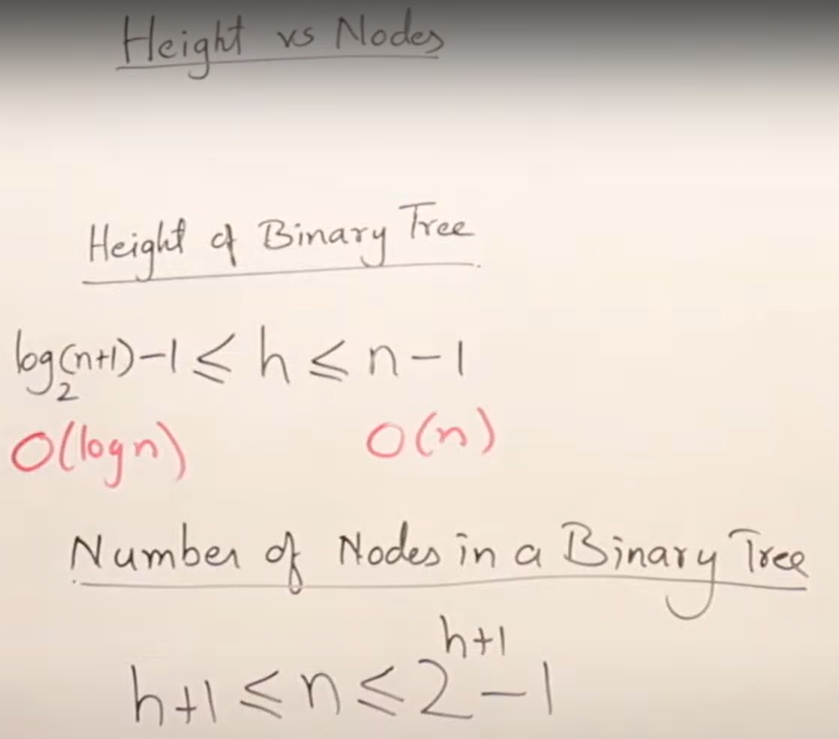 Height vs Nodes
Height of Binary Tree
log₂(n+1)-1 ≤ h ≤ n-1
O(logn) O(n)
Number of Nodes in a Binary Tree
h+1 ≤ n ≤ 2^{h+1} - 1